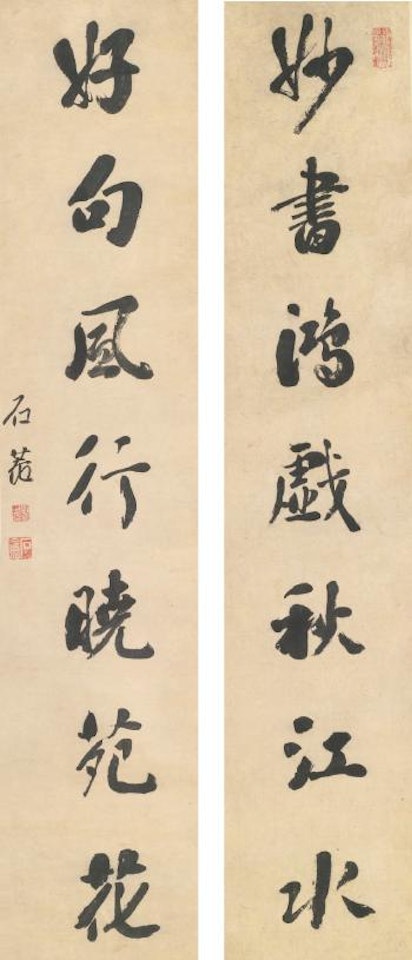 妙書鴻戯秋江水
好句風行曉苑花
石菴